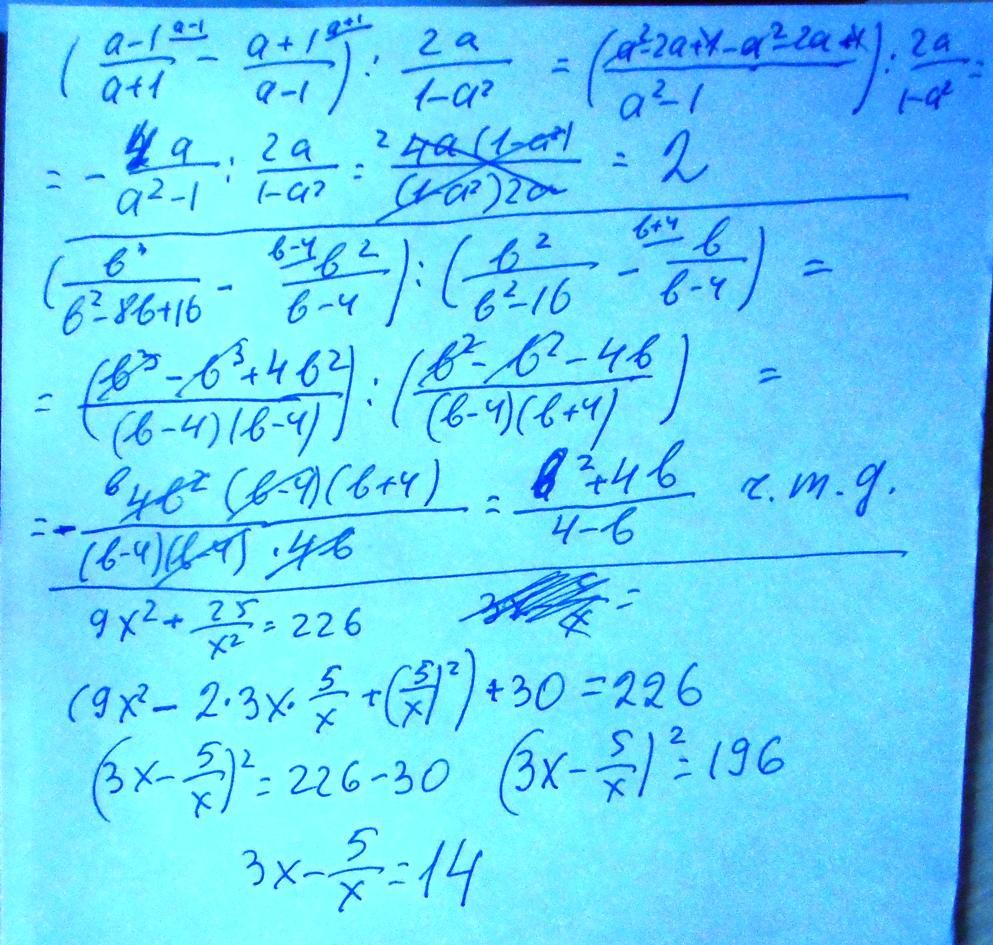 ( (a-1)/(a+1) ^(a-1) - (a+1)/(a-1) ^(a+1) ) : 2a/(1-a²) = ( (a²-2a+1-a²-2a+1)/(a²-1) ) : 2a/(1-a²) =
= - 4a/(a²-1) : 2a/(1-a²) = ² 4a(1-a²)/((1-a²)2a) = 2
( в³/(в²-8в+16) - ^(в-4) в²/(в-4) ) : ( в²/(в²-16) - ^(в+4) в/(в-4) ) =
= ( (в³-в³+4в²)/((в-4)(в-4)) ) : ( (в²-в²-4в)/((в-4)(в+4)) ) =
= - ^в 4в²(в-4)(в+4)/((в-4)(в-4)·4в) = (в²+4в)/(4-в) ч.т.д.
9x² + 25/x² = 226 =
(9x² - 2·3x·5/x + (5/x)²) + 30 = 226
(3x - 5/x)² = 226-30 (3x - 5/x)² = 196
3x - 5/x = 14